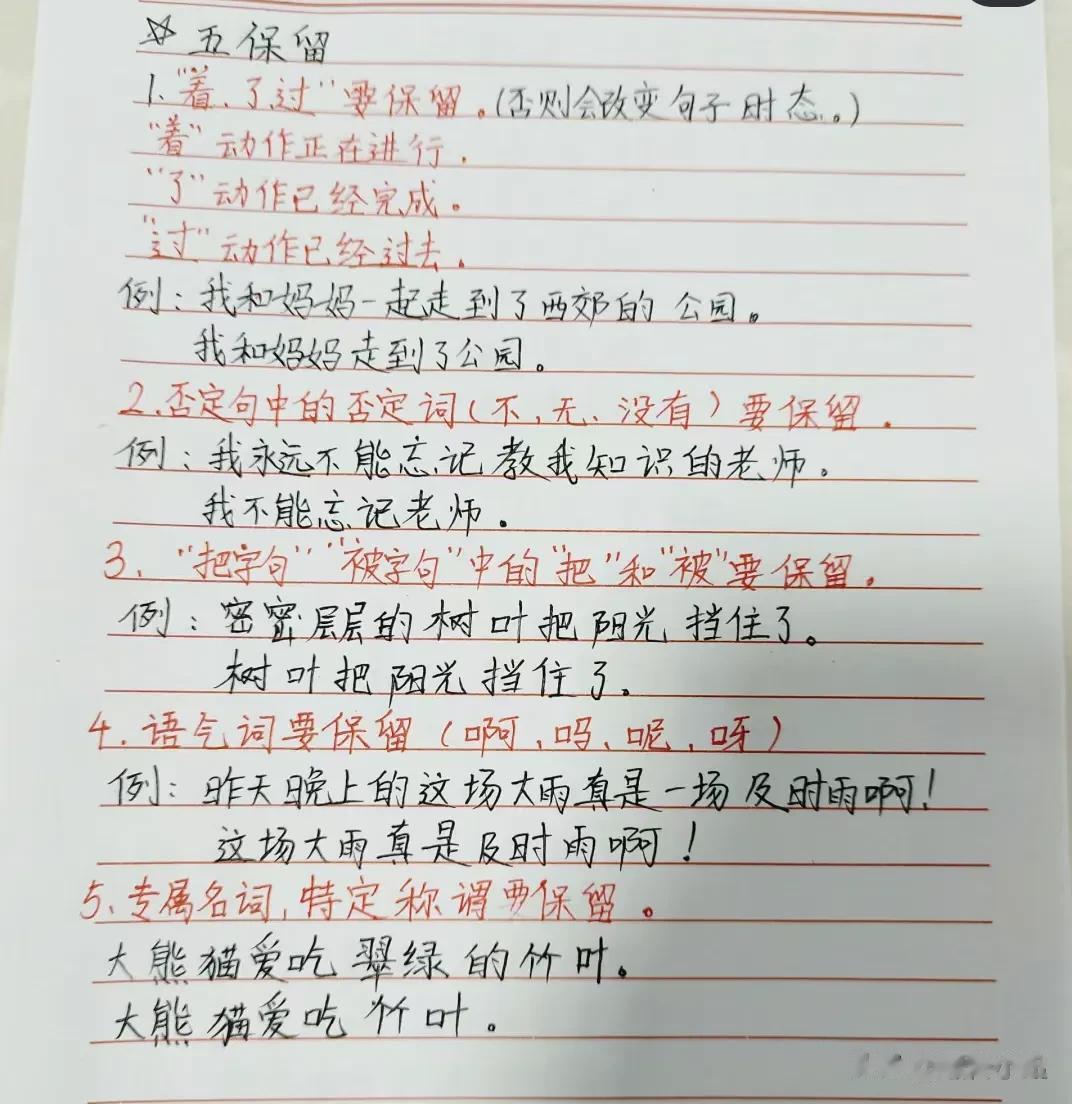 ☆ 五保留
1. "着、了、过"要保留。(否则会改变句子时态。)
"着"动作正在进行.
"了"动作已经完成。
"过"动作已经过去.
例：我和妈妈一起走到了西郊的公园。
我和妈妈走到了公园。
2.否定句中的否定词(不、无、没有)要保留.
例：我永远不能忘记教我知识的老师。
我不能忘记老师。
3. "把字句""被字句"中的"把"和"被"要保留。
例：密密层层的树叶把阳光挡住了。
树叶把阳光挡住了.
4.语气词要保留(啊、吗、呢、呀)
例：昨天晚上的这场大雨真是一场及时雨啊！
这场大雨真是及时雨啊！
5、专属名词,特定称谓要保留。
大熊猫爱吃翠绿的竹叶。
大熊猫爱吃竹叶。